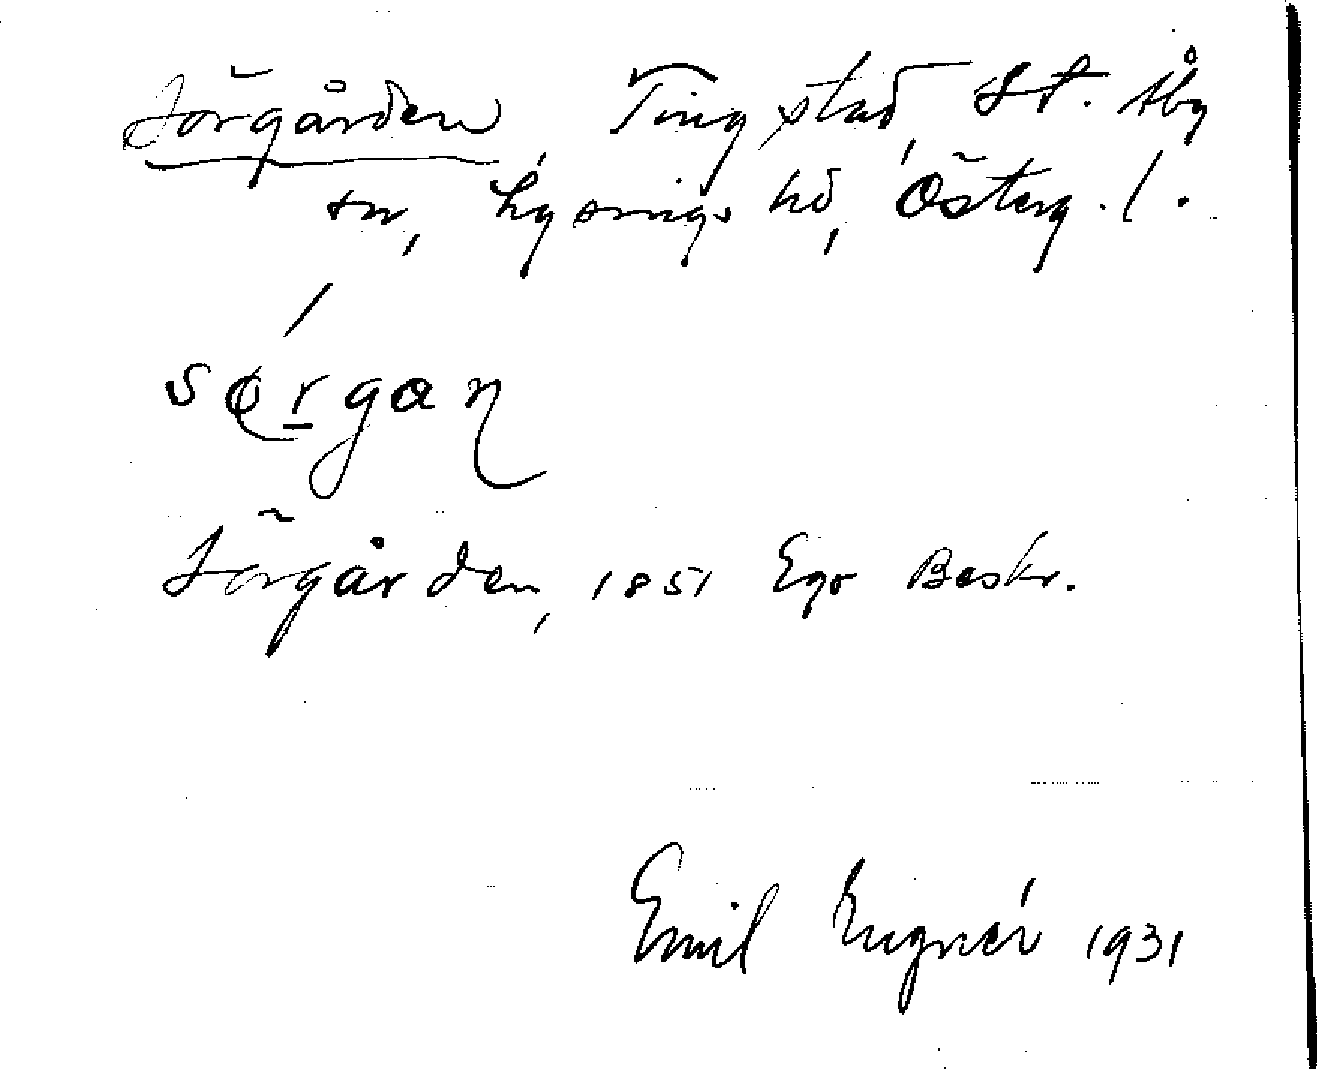 Sörgården, Tingstad, St. Åby
sn, Lysings hd, Österg. l.
sørgan
Sörgården, 1851 Ego Beskr.
Emil 1931